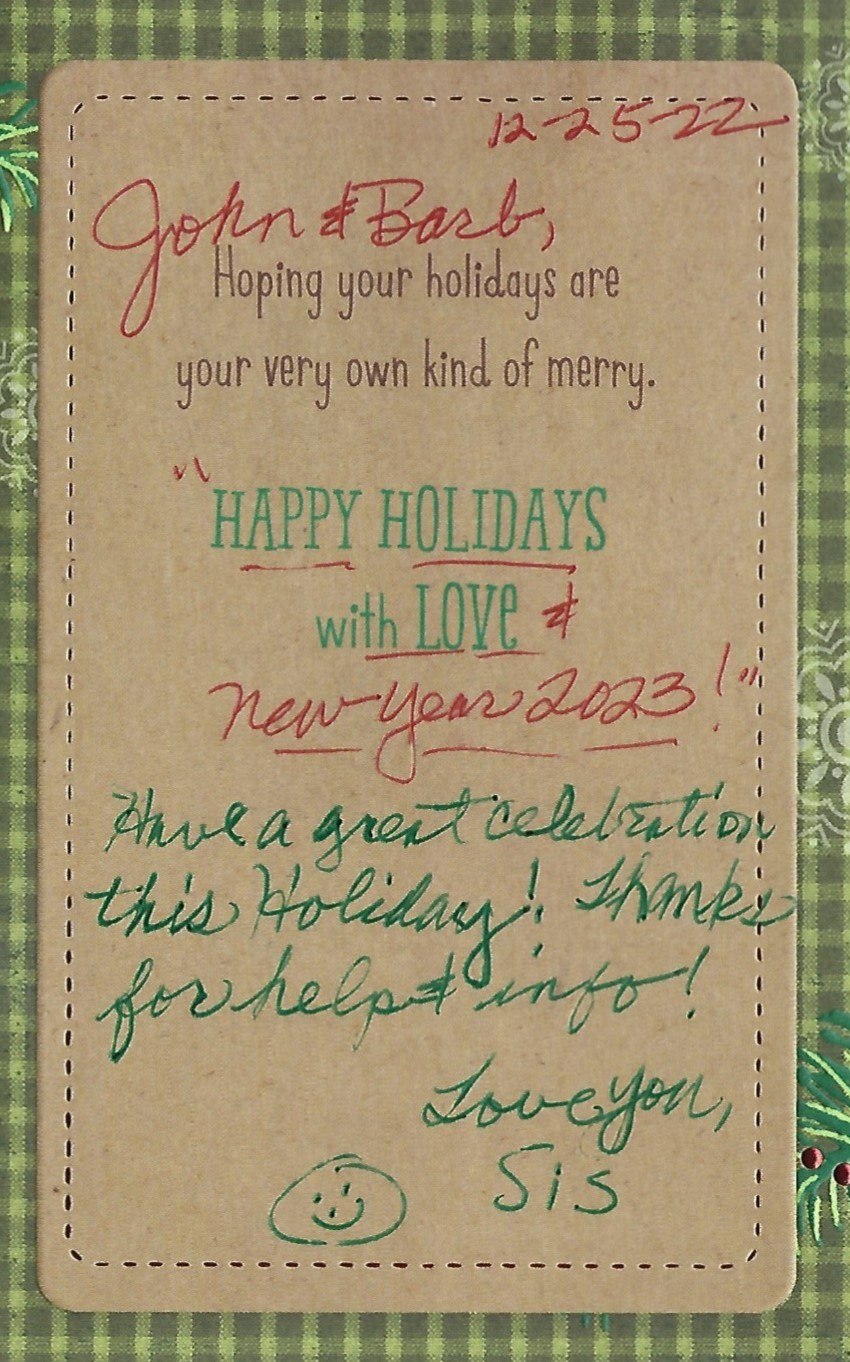 12-25-22
John & Barb,
Hoping your holidays are
your very own kind of merry.
"HAPPY HOLIDAYS
with LOVE &
New Year 2023!"
Have a great celebration
this Holiday! Thanks
for help & info!
Love you,
Sis